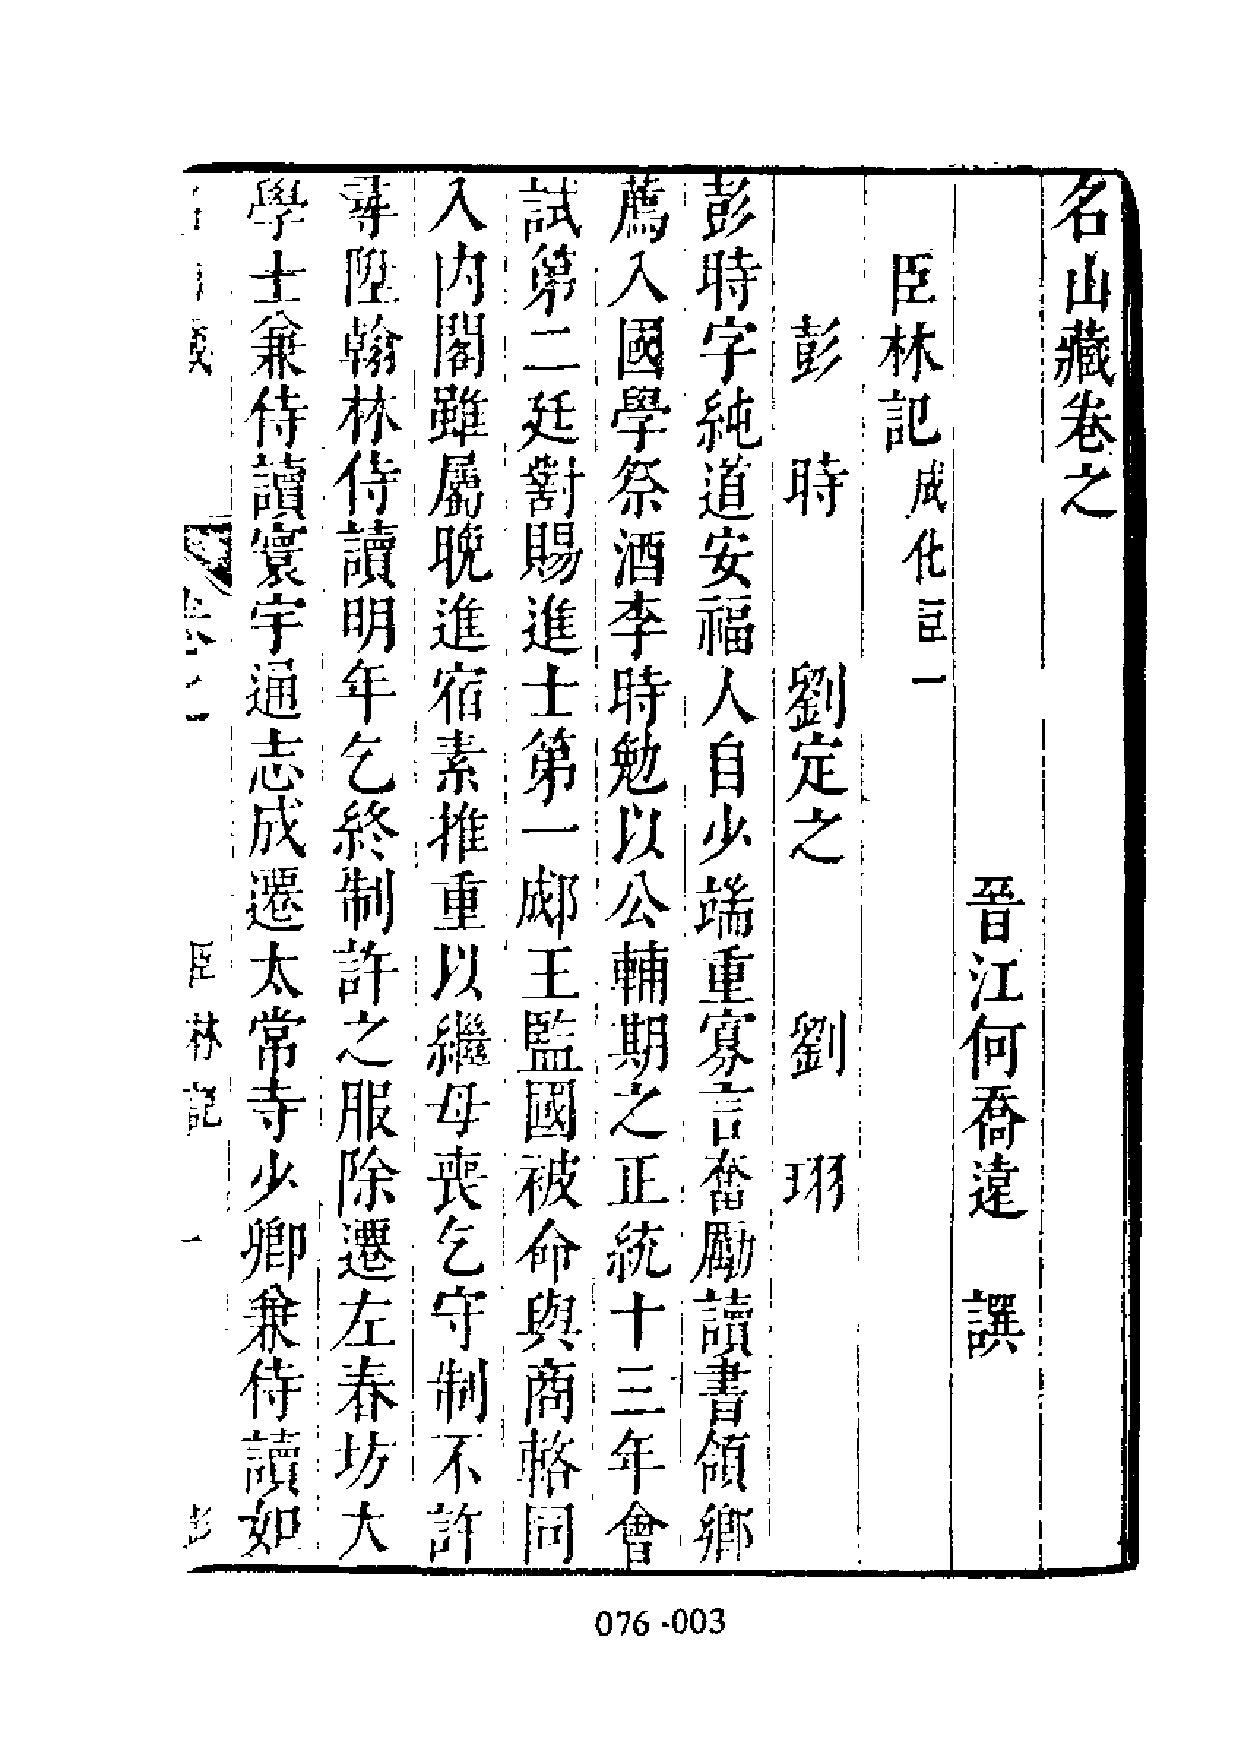 名山藏卷之
晉江何喬遠 譔
臣林記 成化臣一
彭時 劉定之 劉珝
彭時字純道安福人自少端重寡言奮勵讀書領鄉
薦入國學祭酒李時勉以公輔期之正統十三年會
試第二廷對賜進士第一郕王監國被命與商輅同
入内閣雖屬晚進宿素推重以繼母喪乞守制不許
尋陞翰林侍讀明年乞終制許之服除遷左春坊大
學士兼侍讀寰宇通志成遷太常寺少卿兼侍讀如
名山藏 卷之 臣林記 一 彭
076-003